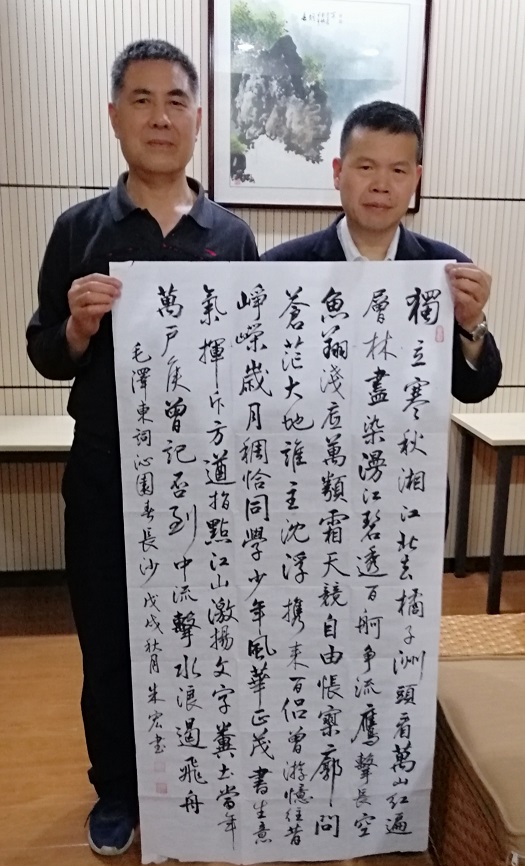 獨立寒秋湘江北去橘子洲頭看萬山紅遍
層林盡染漫江碧透百舸争流鷹擊長空
魚翔淺底萬類霜天競自由悵寥廓問
蒼茫大地誰主沈浮携来百侣曾游憶往昔
崢嶸歲月稠恰同學少年風華正茂書生意
氣揮斥方遒指點江山激揚文字糞土當年
萬户侯曾記否到中流擊水浪遏飛舟
毛澤東詞沁園春長沙戊戌秋月朱宏書